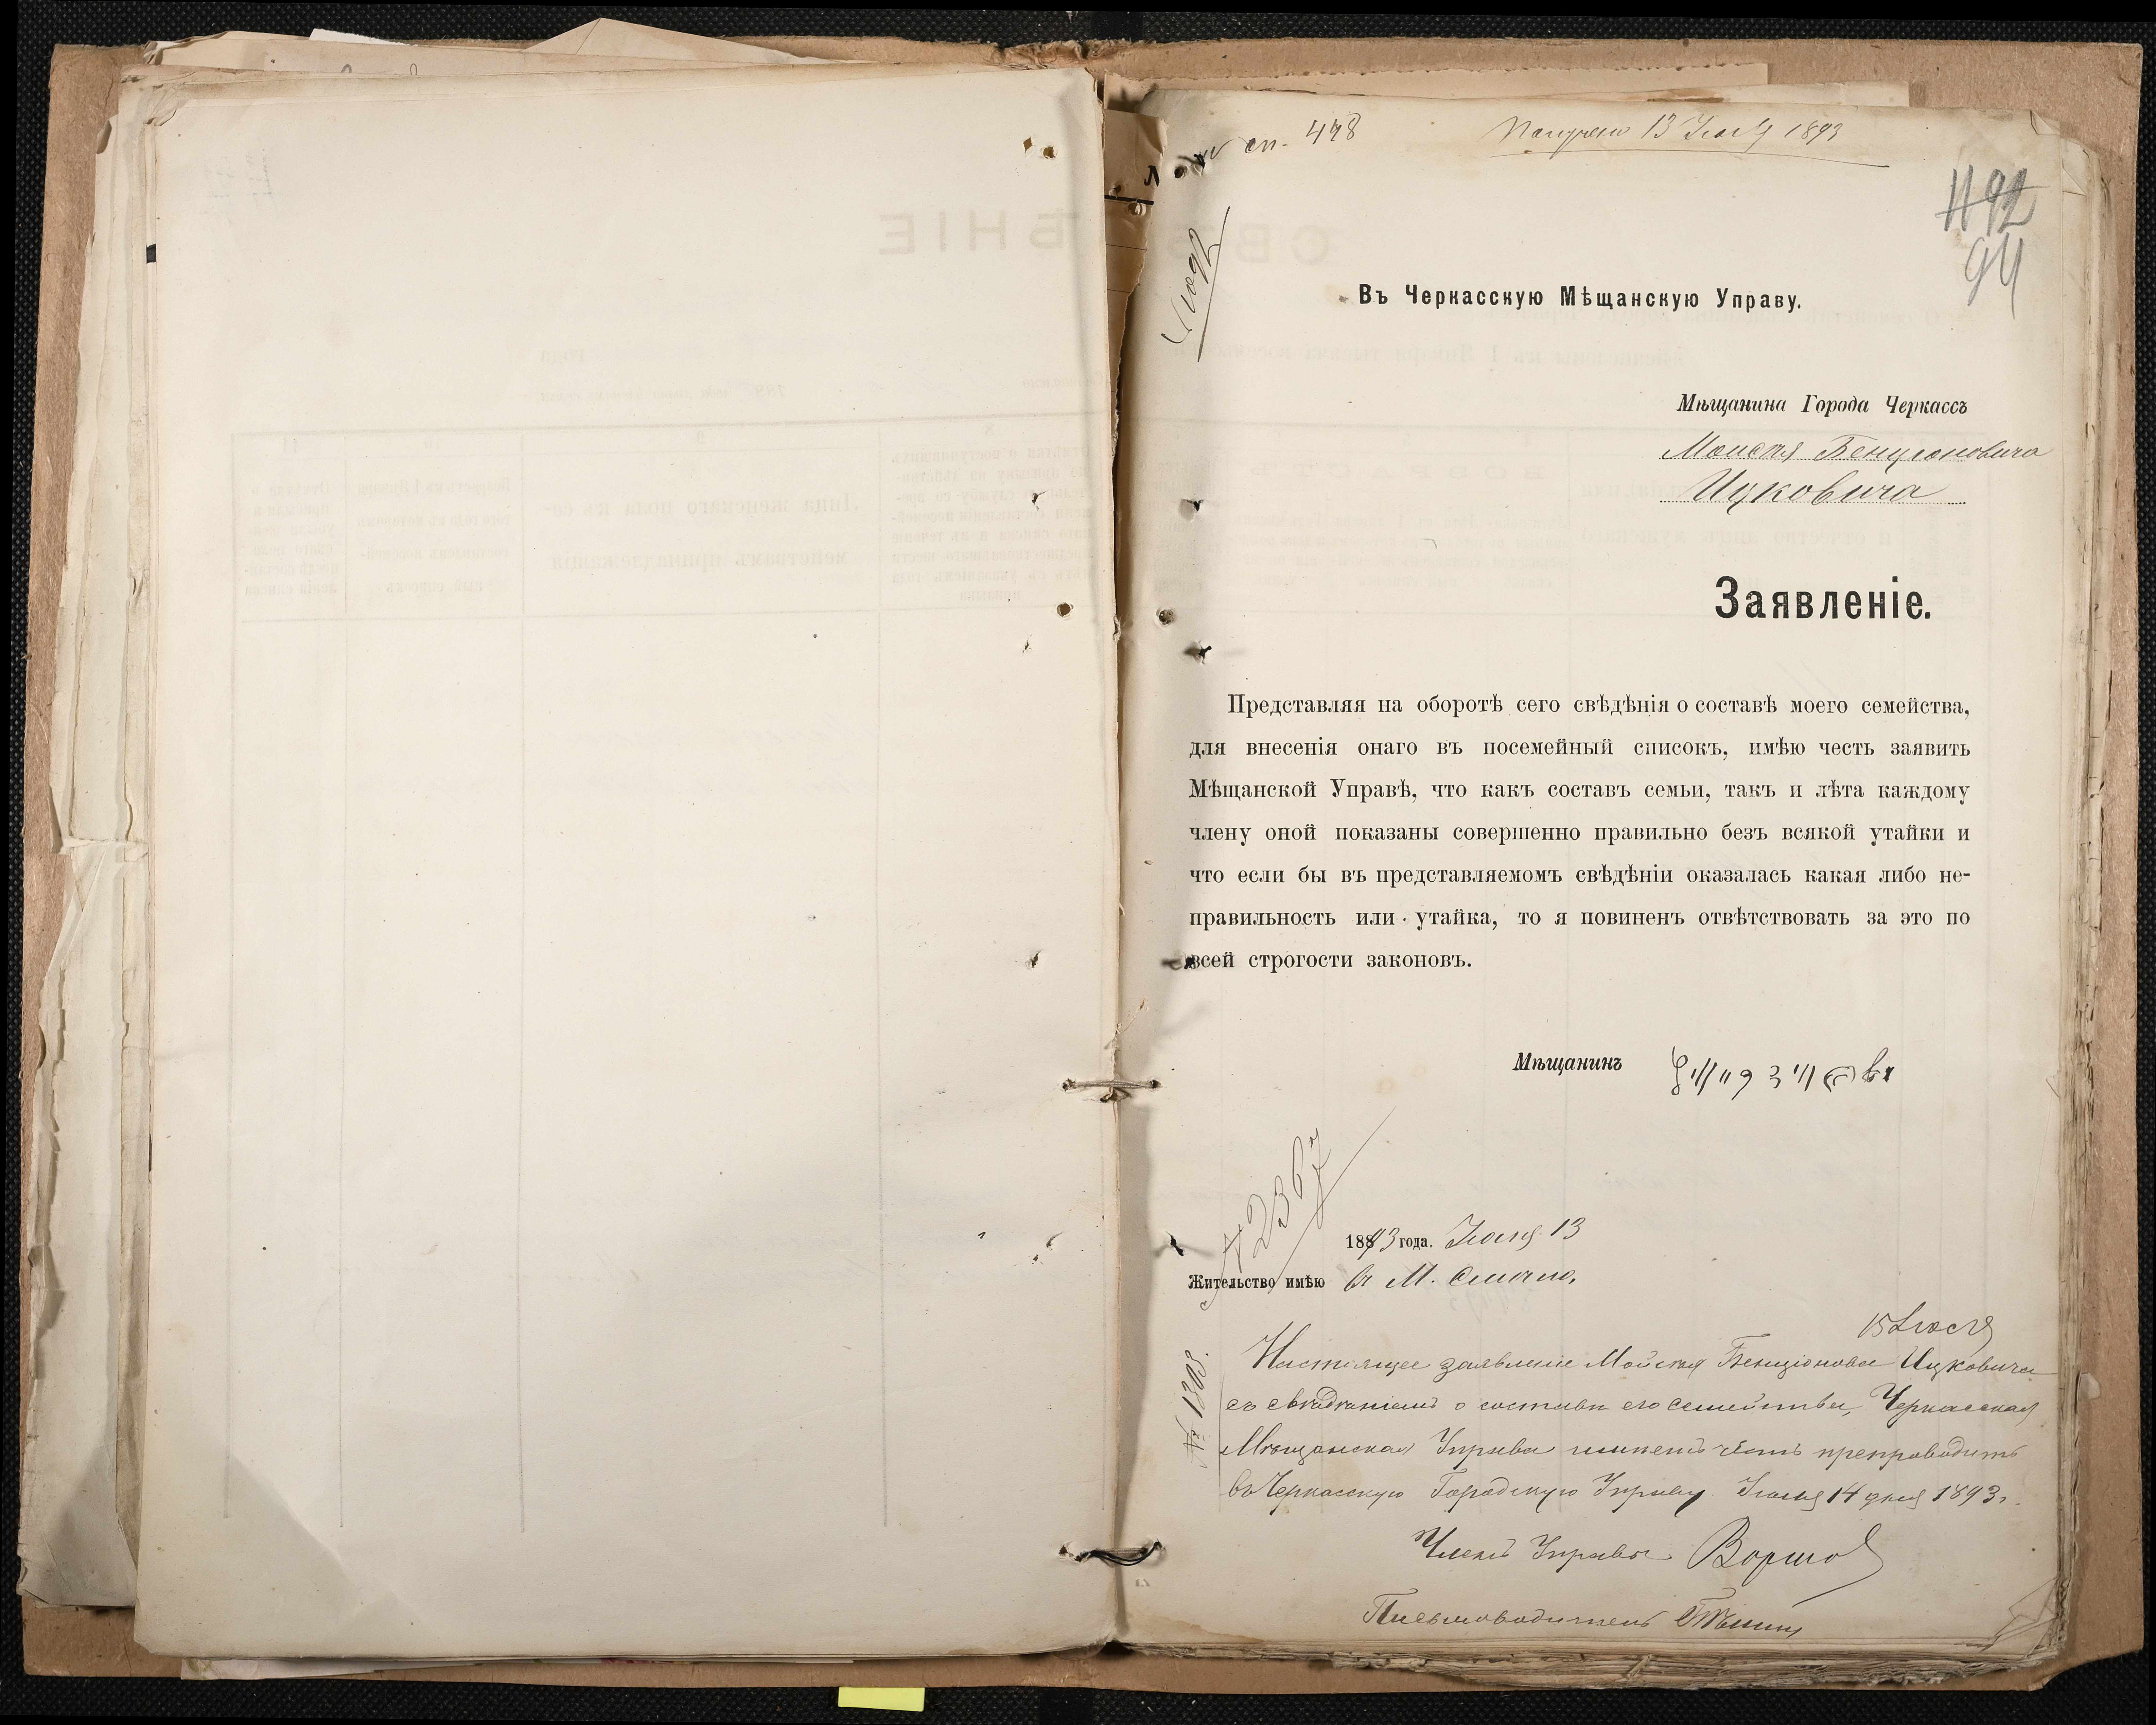 сп. 448
Получено 13 Іюля 1893
92
94
Въ Черкасскую Мѣщанскую Управу.
Мѣщанина Города Черкассъ
Моисея Бенціоновича
Ицковича
Заявленіе.
Представляя на оборотѣ сего свѣдѣнія о составѣ моего семейства,
для внесенія онаго въ посемейный списокъ, имѣю честь заявить
Мѣщанской Управѣ, что какъ составъ семьи, такъ и лѣта каждому
члену оной показаны совершенно правильно безъ всякой утайки и
что если бы въ представляемомъ свѣдѣніи оказалась какая либо не-
правильность или утайка, то я повиненъ отвѣтствовать за это по
всей строгости законовъ.
Мѣщанинъ
1893 года. Іюля 13
Жительство имѣю в М.
15 Іюля
№ 1308.
Настоящее заявленіе Мойсея Бенціонова Ицковича
съ свѣдѣніемъ о составѣ его семейства, Черкасская
Мѣщанская Управа имѣетъ честь препроводить
въ Черкасскую Городскую Управу. Іюля 14 дня 1893 г.
Членъ Управы
Письмоводитель